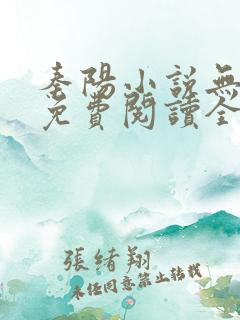 秦陽小説無
免費閱讀全
張緒翔
未经同意禁止转载